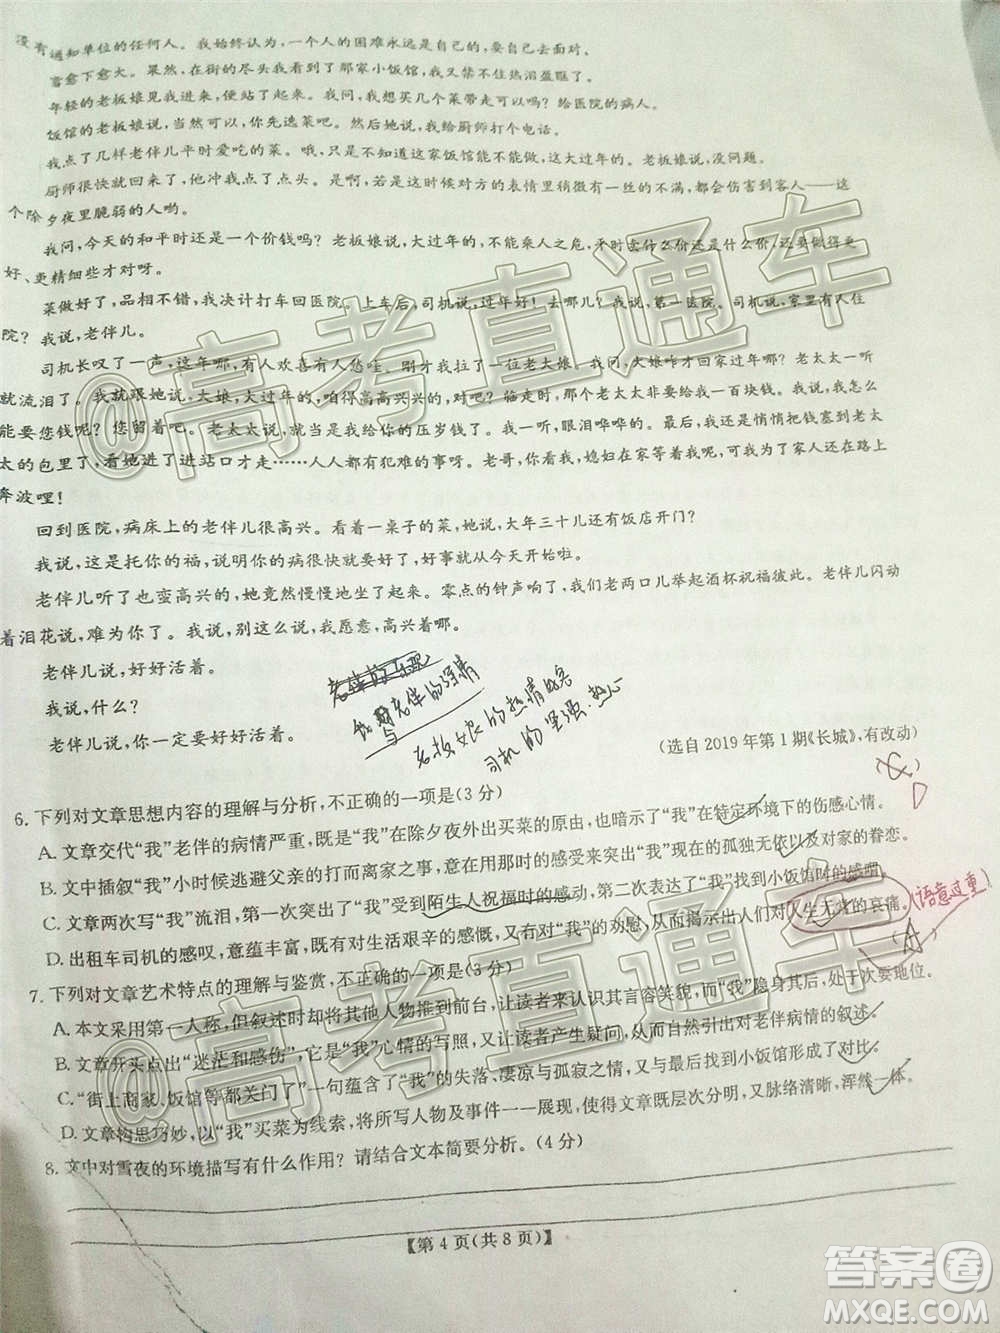 没有通知单位的任何人。我始终认为，一个人的困难永远是自己的，要自己去面对。
雪愈下愈大。果然，在街的尽头我看到了那家小饭馆，我又禁不住热泪盈眶了。
年轻的老板娘见我进来，便站了起来。我问，我想买几个菜带走可以吗？给医院的病人。
饭馆的老板娘说，当然可以，你先选菜吧。然后她说，我给厨师打个电话。
我点了几样老伴儿平时爱吃的菜。哦，只是不知道这家饭馆能不能做，这大过年的。老板娘说，没问题。
厨师很快就回来了，他冲我点了点头。是啊，若是这时候对方的表情里稍微有一丝的不满，都会伤害到客人——这
个除夕夜里脆弱的人哟。
我问，今天的和平时还是一个价钱吗？老板娘说，大过年的，不能乘人之危，平时卖什么价还是什么价，还要做得更
好、更精细些才对呀。
菜做好了，品相不错，我决计打车回医院。上车后，司机说，过年好！去哪儿？我说，第一医院。司机说，家里有人住
院？我说，老伴儿。
司机长叹了一声，这年哪，有人欢喜有人愁哇。刚才我拉了一位老大娘，我问，大娘咋才回家过年呢？老太太一说
就流泪了。我就跟她说，大娘，大过年的，咱得高高兴兴的才对呀？临走时，老太太还多给我一百块钱。我说，我哪
能要您钱呢？您留着吧。老太太说，就当是我给你的压岁钱了。我听了，眼泪哗哗的。最后我还是悄悄把钱塞到老太
太的包里了，看她进了进站口才走……人人都有犯难的事呀。老哥，你想，媳妇在家等着我呢，可我为了客人还在路上
奔波哩！
回到医院，病床上的老伴儿很高兴。看着一桌子的菜，她说，大年三十儿还有饭店开门？
我说，这是托你的福，说明你的病很快就要好了，好事就从今天开始啦。
老伴儿听了也蛮高兴的，她竟然慢慢地坐了起来。零点的钟声响了，我们老两口儿举起酒杯祝福彼此。老伴儿闪动
着泪花说，难为你了。我说，别这么说，我愿意，高兴着哪。
老伴儿说，好好活着。
我说，什么？
老伴儿说，你一定要好好活着。
我对老伴的深情
老板娘的热情好客
司机的坚强、热心
(选自2019年第1期《长城》，有改动)
6. 下列对文章思想内容的理解与分析，不正确的一项是(3分)
(C)
D
A. 文章交代“我”老伴的病情严重，既表明“我”在除夕夜外出买菜的原由，也暗示了“我”在特定环境下的伤感心情。
B. 文中插叙“我”小时候逃避父亲的打骂而离家之事，意在用那时的脱险来突出“我”现在的孤独无依以及对家的眷恋。
C. 文章两次写“我”流泪，第一次突出了“我”受到陌生人祝福时的感动，第二次表现了“我”找到小饭馆时的感喟。
D. 出租车司机的感叹，意蕴丰富，既有对生活艰辛的感慨，又有对“我”的劝慰，从而揭示出人们对人生无常的哀痛。
(语意过重)
7. 下列对文章艺术特点的理解与鉴赏，不正确的一项是(3分)
(A)
A. 本文采用第一人称，但叙述时却将其他人物推到前台，让读者来认识其言容笑貌，而“我”隐身其后，处于次要地位。
B. 文章开头点出“迷茫和感伤”，它是“我”心情的写照，又让读者产生疑问，从而自然引出对老伴病情的叙述。
C. “街上商家、饭馆等都关门了”一句蕴含了“我”的失落、凄凉与孤寂之情，同时又与小饭馆形成了对比。
D. 文章构思巧妙，以“我”买菜为线索，将所写人物及事件一一展现，使得文章既层次分明，又脉络清晰，浑然一体。
8. 文中对雪夜的环境描写有什么作用？请结合文本简要分析。(4分)
【第4页(共8页)】
@高考直通车
@高考直通车
答案圈
MXQE.COM